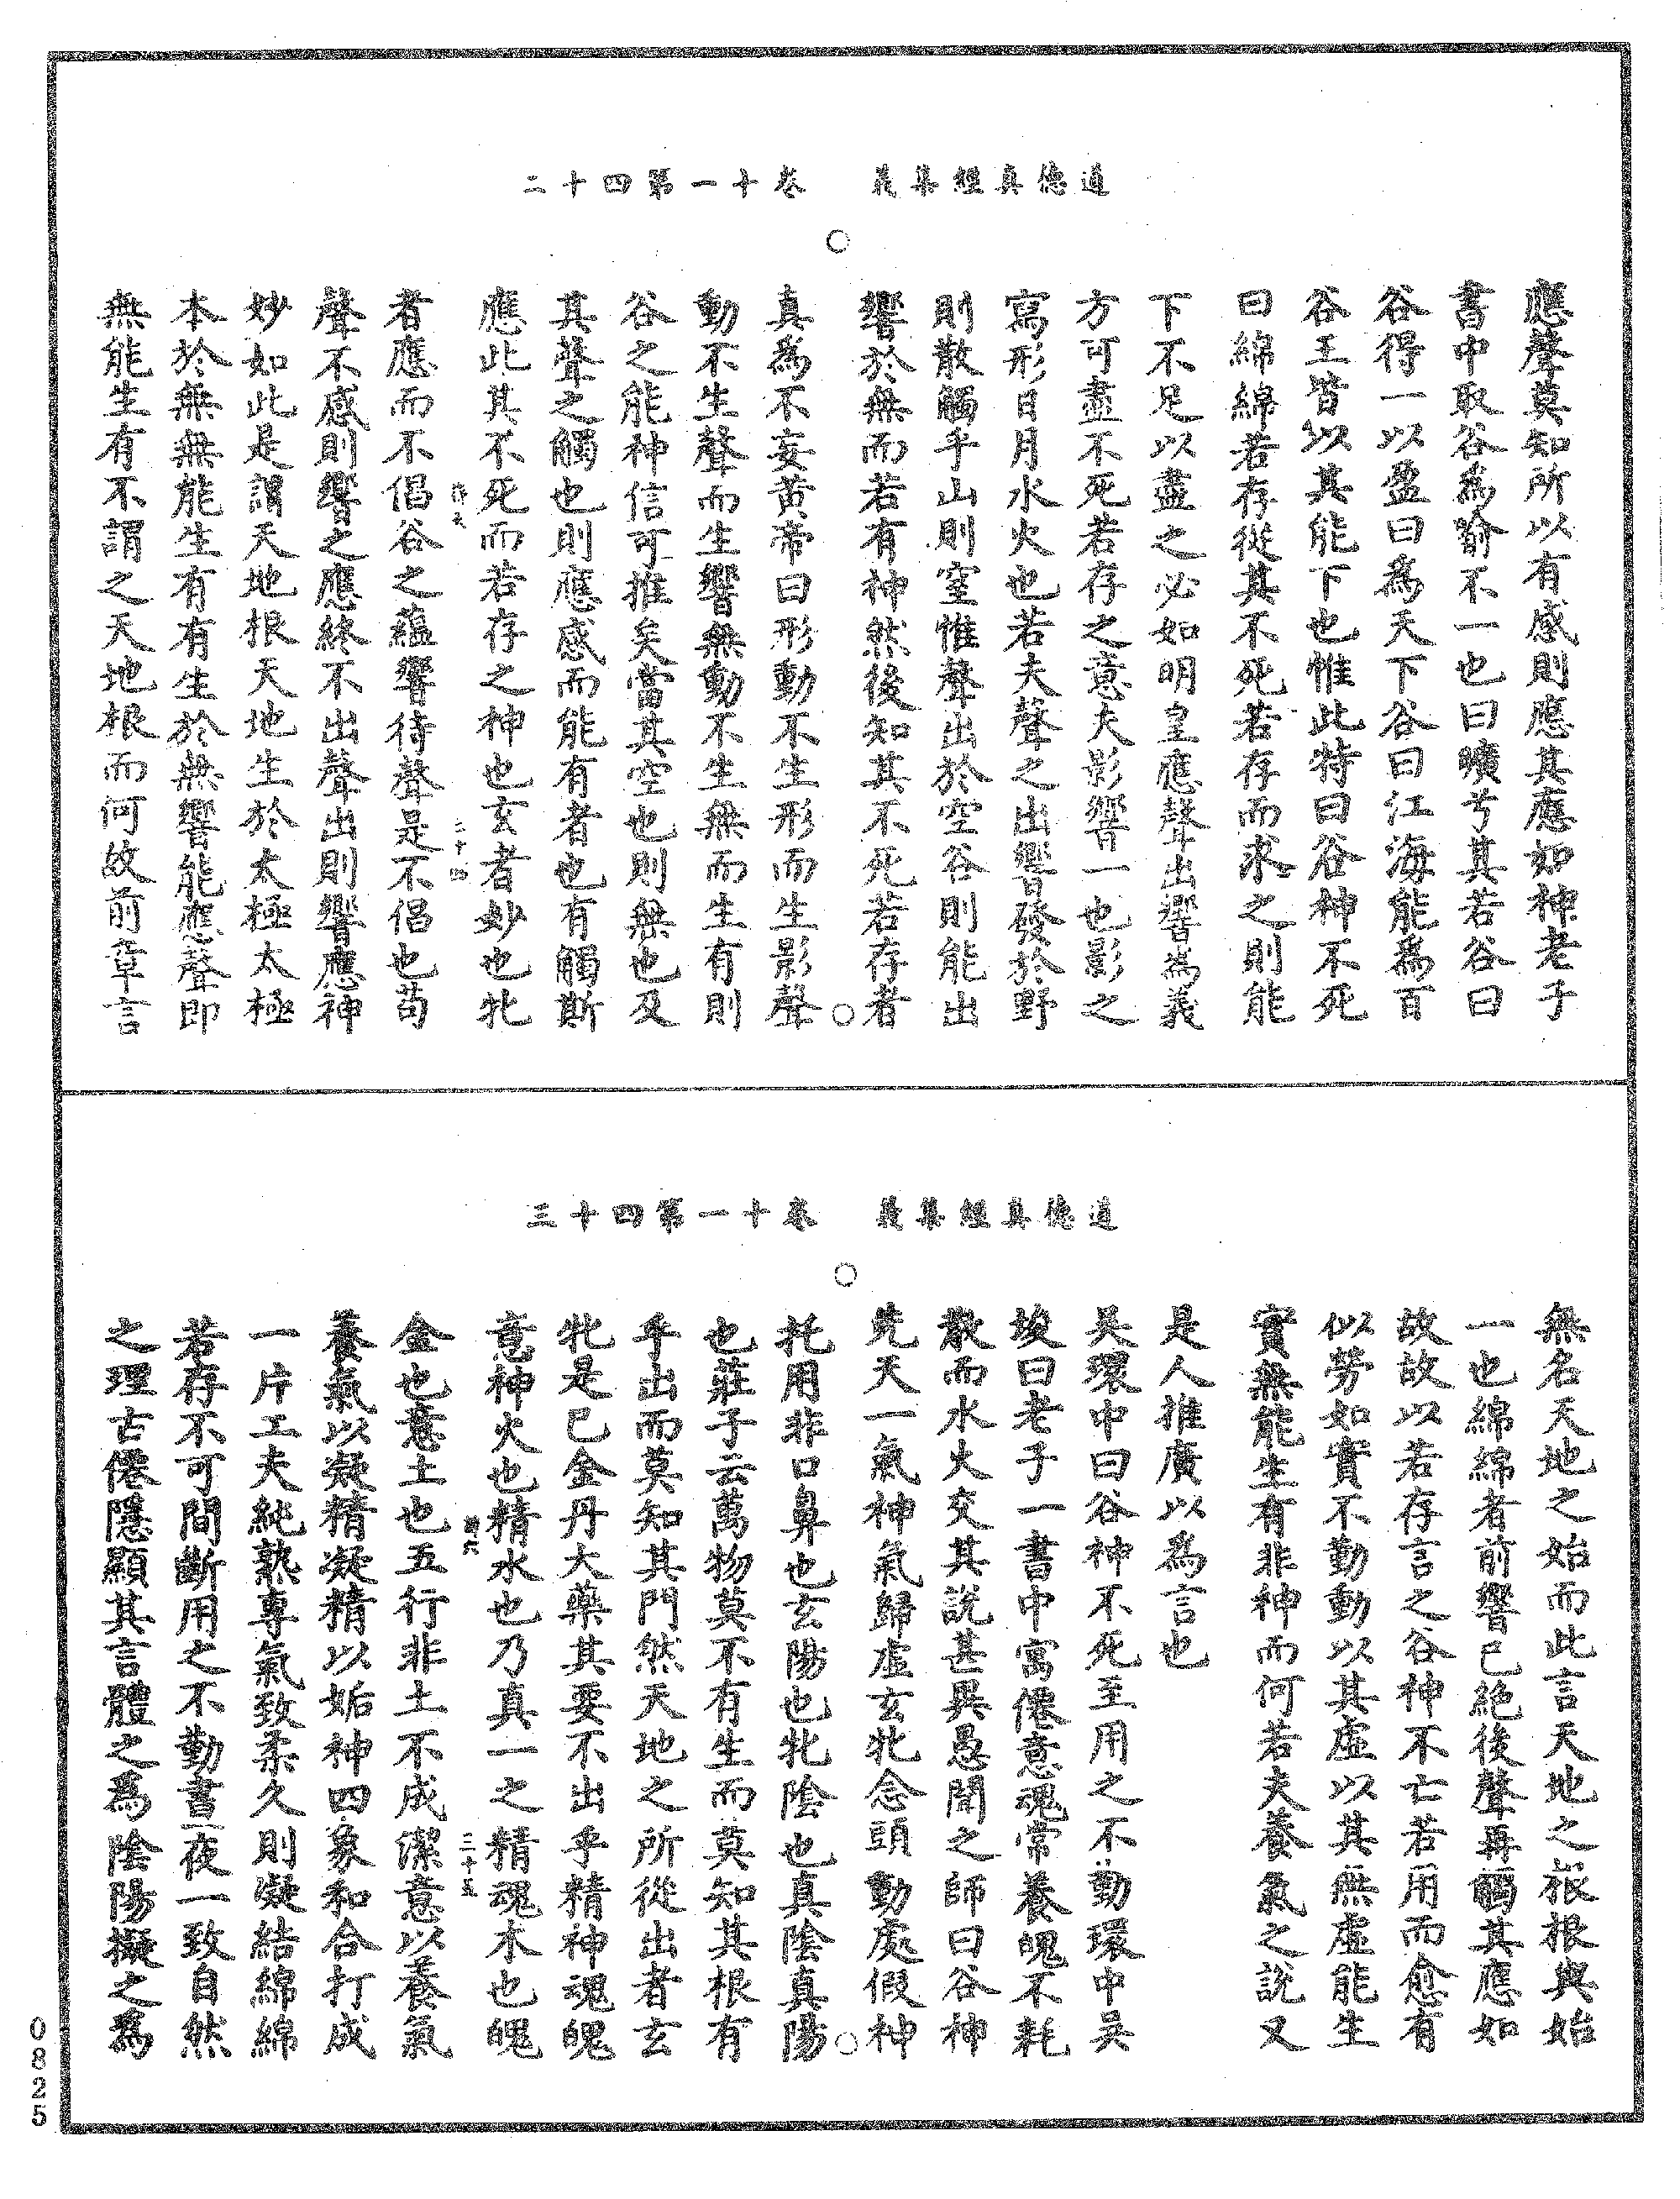 道德真經集義　卷十一第四十二
應聲莫知所以有感則應其應如神老子
書中取谷為喻不一也曰曠兮其若谷曰
谷得一以盈曰為天下谷曰江海能為百
谷王皆以其能下也惟此特曰谷神不死
曰綿綿若存從其不死若存而求之則能
下不足以盡之必如明皇應聲出響為義
方可盡不死若存之意夫影響一也影之
寫形日月水火也若夫聲之出響發於野
則散觸乎山則窒惟聲出於空谷則能出
響於無而若有神然後知其不死若存者
真為不妄黃帝曰形動不生形而生影聲
動不生聲而生響無動不生無而生有則
谷之能神信可推矣當其空也則無也及
其聲之觸也則應感而能有者也有觸斯
應此其不死而若存之神也玄者妙也牝
二十四
者應而不倡谷之蘊響待聲是不倡也苟
聲不感則響之應終不出聲出則響應神
妙如此是謂天地根天地生於太極太極
本於無無能生有有生於無響能應聲即
無能生有不謂之天地根而何故前章言
道德真經集義　卷十一第四十三
無名天地之始而此言天地之根根與始
一也綿綿者前響已絕後聲再觸其應如
故故以若存言之谷神不亡若用而愈有
似勞如實不勤動以其虛以其無虛能生
實無能生有非神而何若夫養氣之說又
是人推廣以為言也
吳環中曰谷神不死至用之不勤環中吳
埈曰老子一書中寓僊意魂常養魄不耗
散而水火交其說甚異愚聞之師曰谷神
先天一氣神氣歸虛玄牝念頭動處假神
托用非口鼻也玄陽也牝陰也真陰真陽
也莊子云萬物莫不有生而莫知其根有
乎出而莫知其門然天地之所從出者玄
牝是已金丹大藥其要不出乎精神魂魄
意神火也精水也乃真一之精魂木也魄
二十五
金也意土也五行非土不成潔意以養氣
養氣以凝精凝精以姤神四象和合打成
一片工夫純熟專氣致柔久則凝結綿綿
若存不可間斷用之不勤晝夜一致自然
之理古僊隱顯其言體之為陰陽擬之為
0825